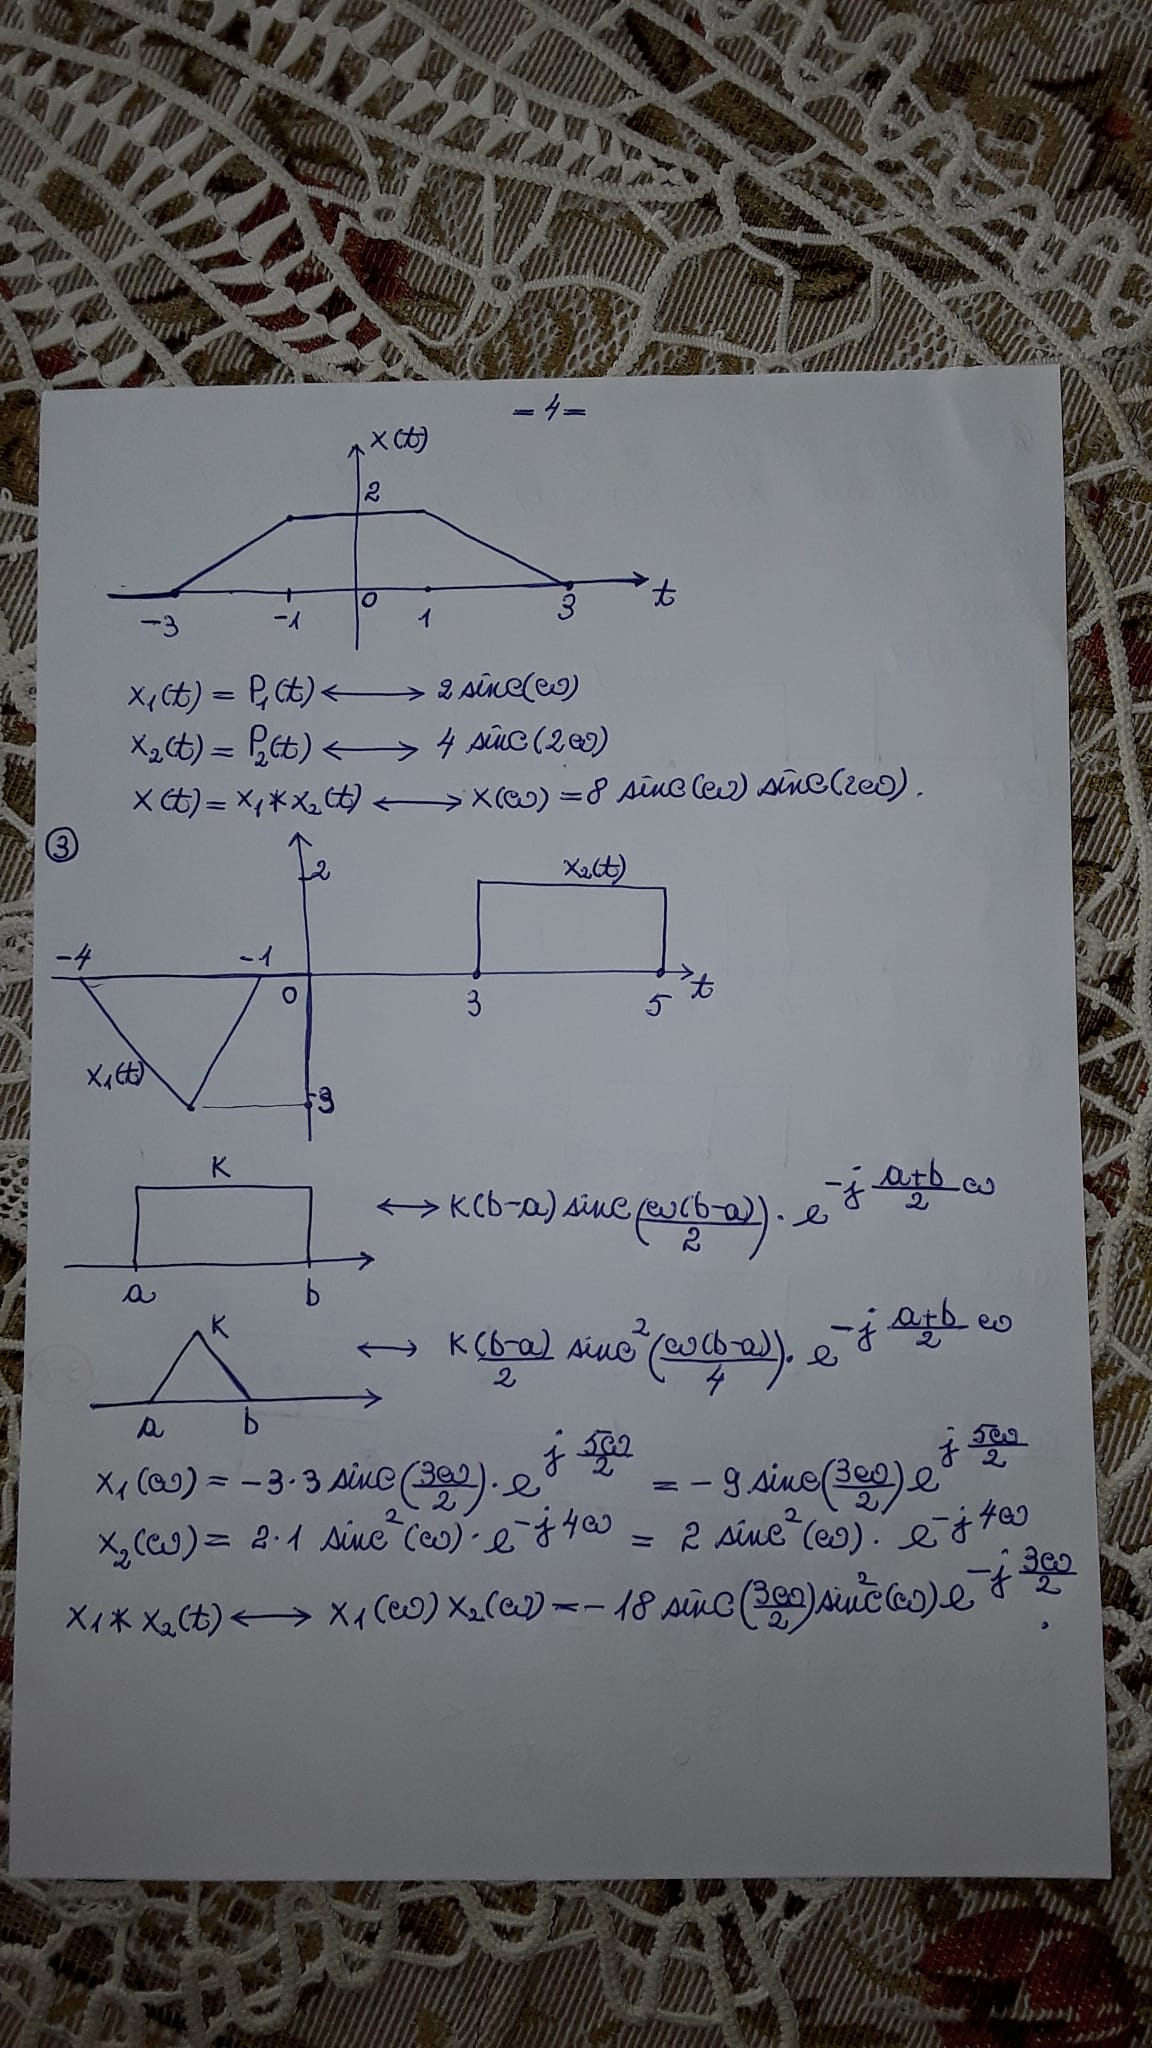 = 4 =
x(t)
2
-3 -1 0 1 3 t
x₁(t) = P₁(t) ⟷ 2 sinc(ω)
x₂(t) = P₂(t) ⟷ 4 sinc(2ω)
x(t) = x₁ * x₂(t) ⟷ X(ω) = 8 sinc(ω) sinc(2ω).
③
2 x₂(t)
-4 -1 0 3 5 t
x₁(t) -3
K
⟷ K(b-a) sinc(ω(b-a)/2) · e^(-j (a+b)/2 ω)
a b
K ⟷ K (b-a)/2 sinc²(ω(b-a)/4) · e^(-j (a+b)/2 ω)
a b
X₁(ω) = -3·3 sinc(3ω/2) · e^(j 5ω/2) = -9 sinc(3ω/2) e^(j 5ω/2)
X₂(ω) = 2·1 sinc²(ω) · e^(-j4ω) = 2 sinc²(ω) · e^(-j4ω)
x₁ * x₂(t) ⟷ X₁(ω) X₂(ω) = -18 sinc(3ω/2) sinc²(ω) e^(-j 3ω/2).